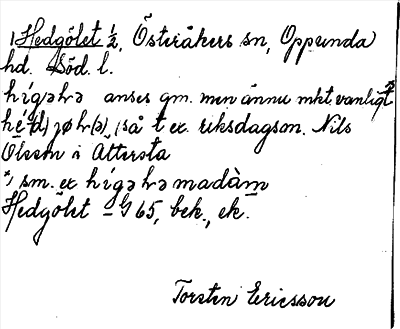 1 Hedgölet ½, Österåkers sn, Oppunda
hd. Söd. l.
hígəhə anses gm. men ännu mkt vanligt *)
hé(d)jøh(ə), så t ex. riksdagsm. Nils
Olsson i Ättersta
*) sm. ex hígəhə madàm
Hedgölet – G 65, bek., ek.
Torsten Ericsson